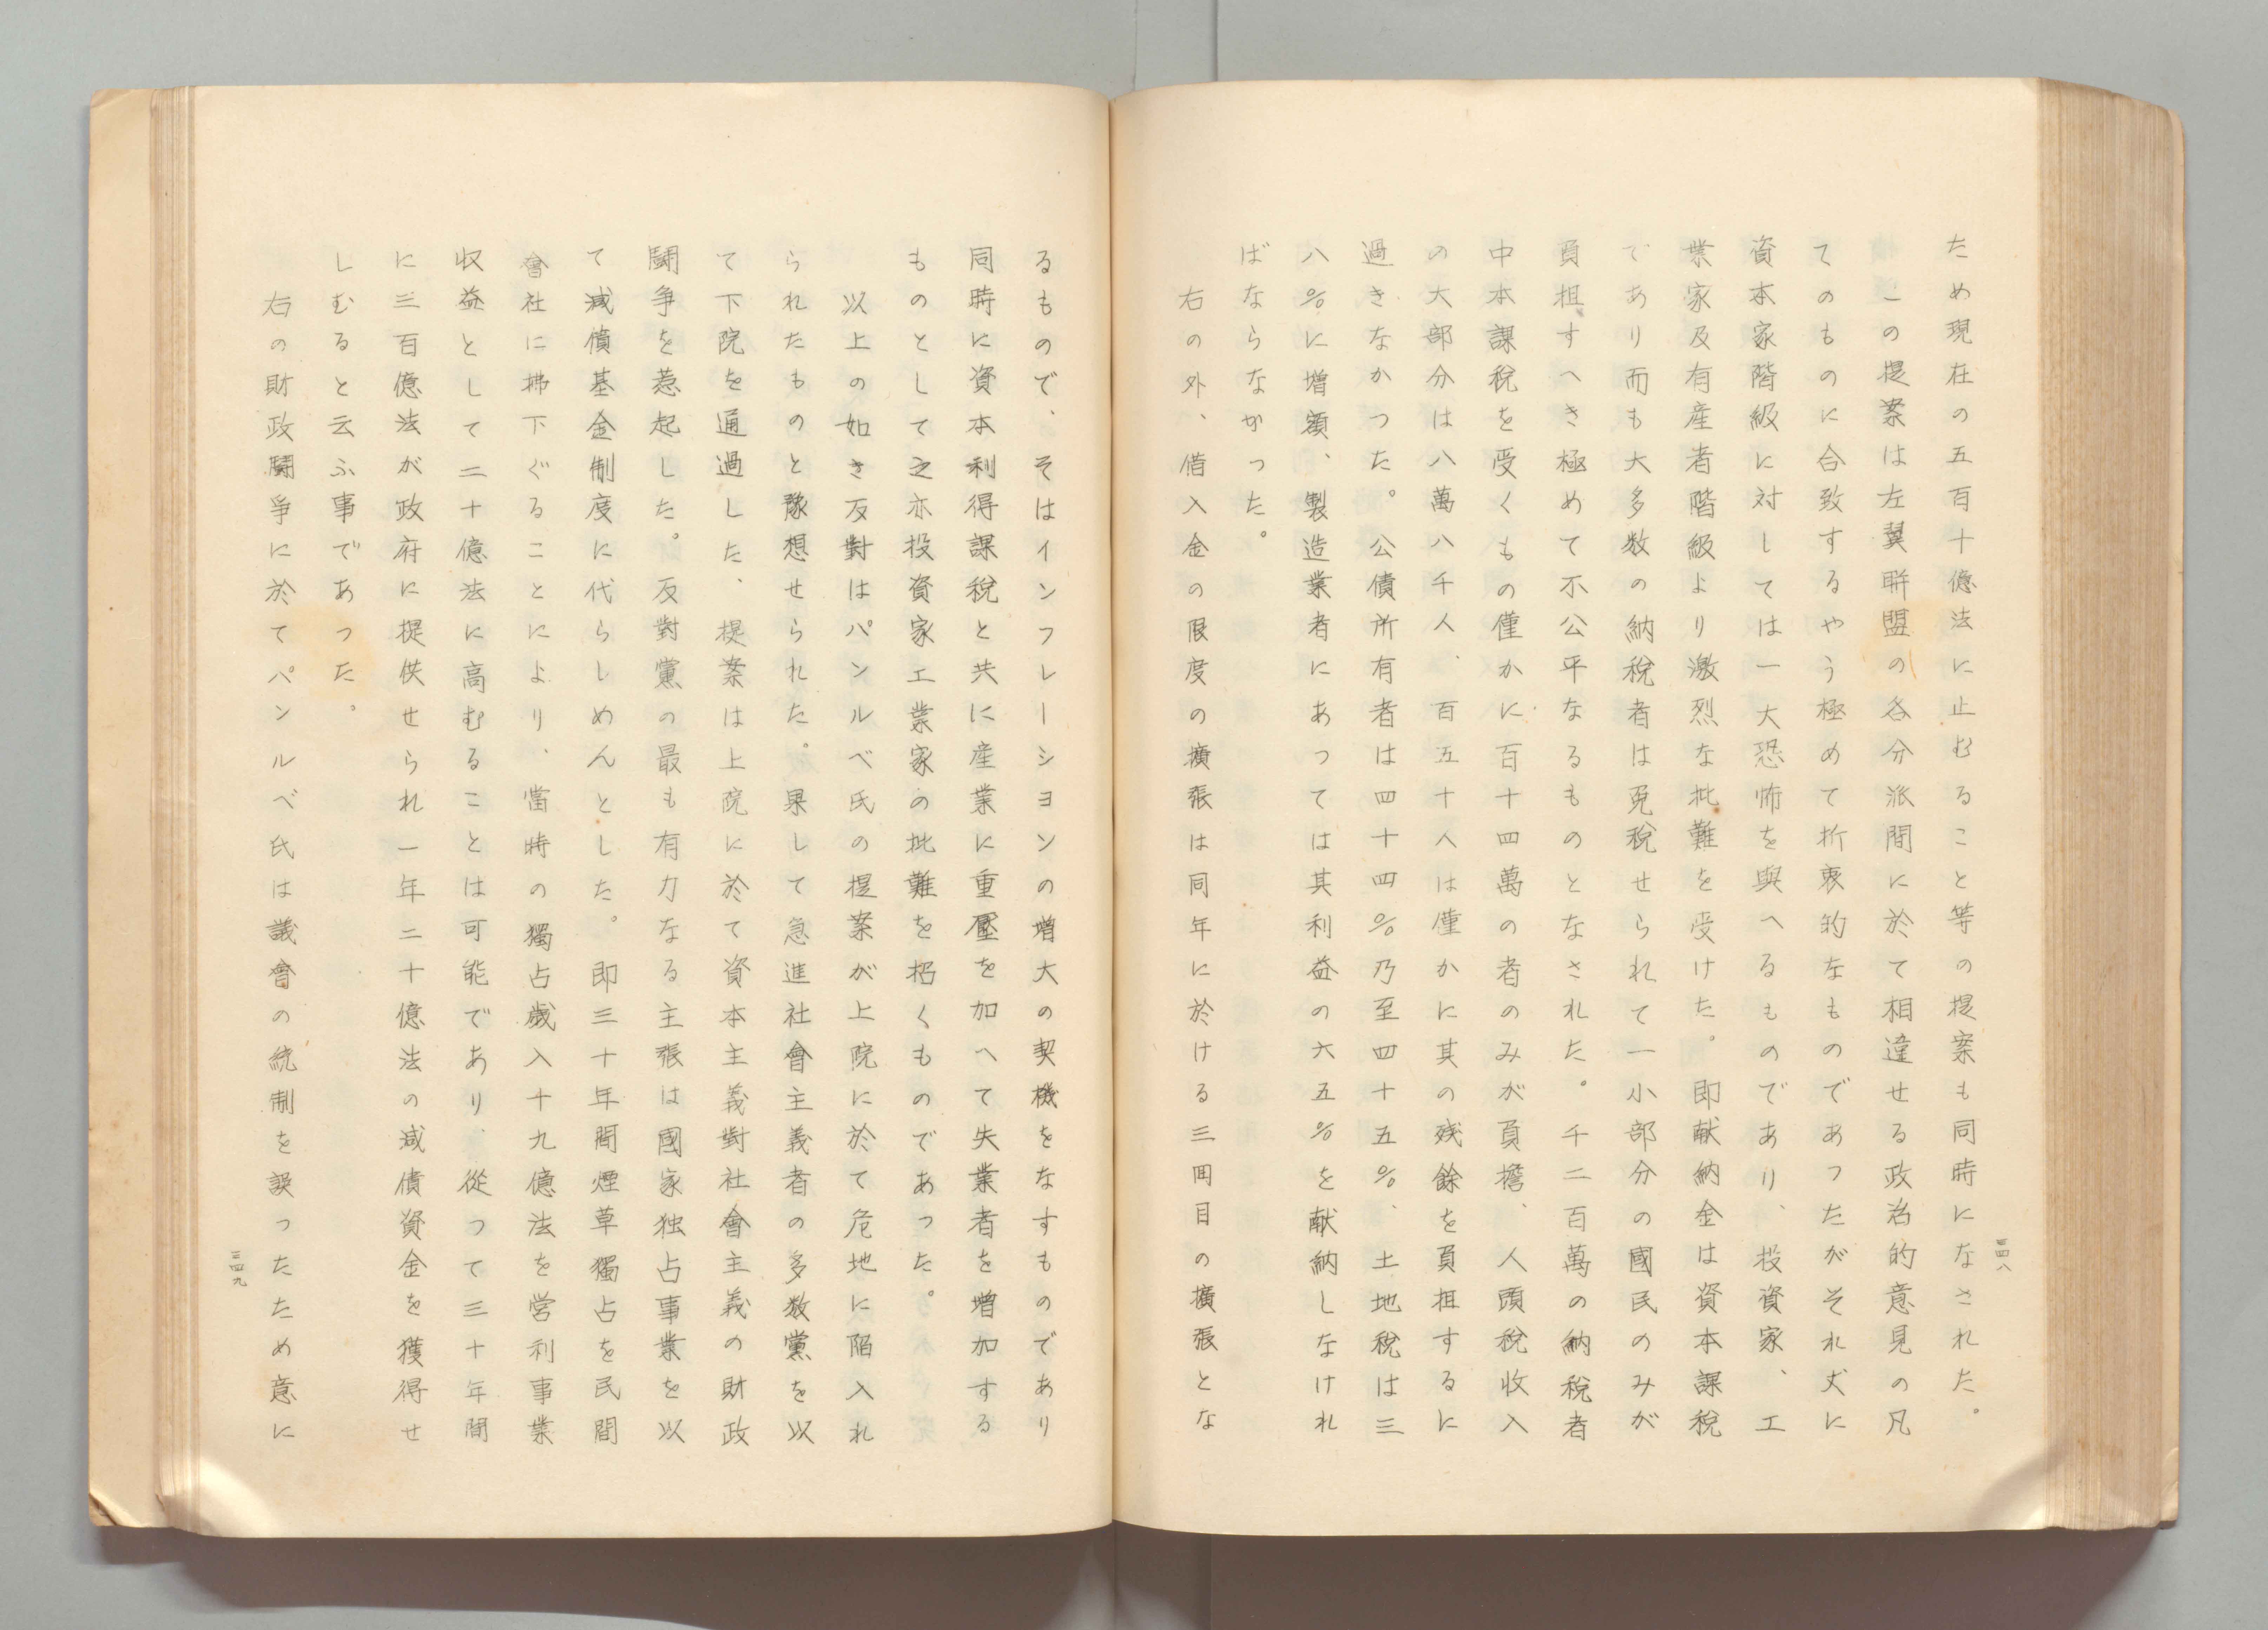 ため現在の五百十億法に止むること等の提案も同時になされた。
この提案は左翼聯盟の各分派間に於て相違せる政治的意見の凡
てのものに合致するやう極めて折衷的なものであつたがそれ丈に
資本家階級に対しては一大恐怖を與へるものであり、投資家、工
業家及有産者階級より激烈な批難を受けた。即献納金は資本課税
であり而も大多数の納税者は免税せられて一小部分の國民のみが
負担すへき極めて不公平なるものとなされた。千二百萬の納税者
中本課税を受くもの僅かに百十四萬の者のみが負擔、人頭税收入
の大部分は八萬八千人、百五十人は僅かに其の残餘を負担するに
過きなかつた。公債所有者は四十四％乃至四十五％、土地税は三
八％に増額、製造業者にあつては其利益の六五％を献納しなけれ
ばならなかつた。
右の外、借入金の限度の擴張は同年に於ける三回目の擴張とな
三四八
るもので、そはインフレーシヨンの増大の契機をなすものであり
同時に資本利得課税と共に産業に重壓を加へて失業者を増加する
ものとして之亦投資家工業家の批難を招くものであつた。
以上の如き反對はパンルベ氏の提案が上院に於て危地に陥入れ
られたものと豫想せられた。果して急進社會主義者の多数黨を以
て下院を通過した、提案は上院に於て資本主義對社會主義の財政
鬪争を惹起した。反對黨の最も有力なる主張は國家独占事業を以
て減債基金制度に代らしめんとした。即三十年間煙草獨占を民間
會社に拂下ぐることにより、當時の獨占歳入十九億法を営利事業
収益として二十億法に高むることは可能であり、從つて三十年間
に三百億法が政府に提供せられ一年二十億法の減債資金を獲得せ
しむると云ふ事であつた。
右の財政鬪爭に於てパンルベ氏は議會の統制を誤つたため意に
三四九